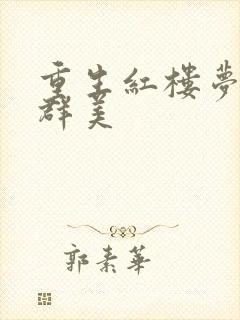 重生紅樓夢
群美
郭素華